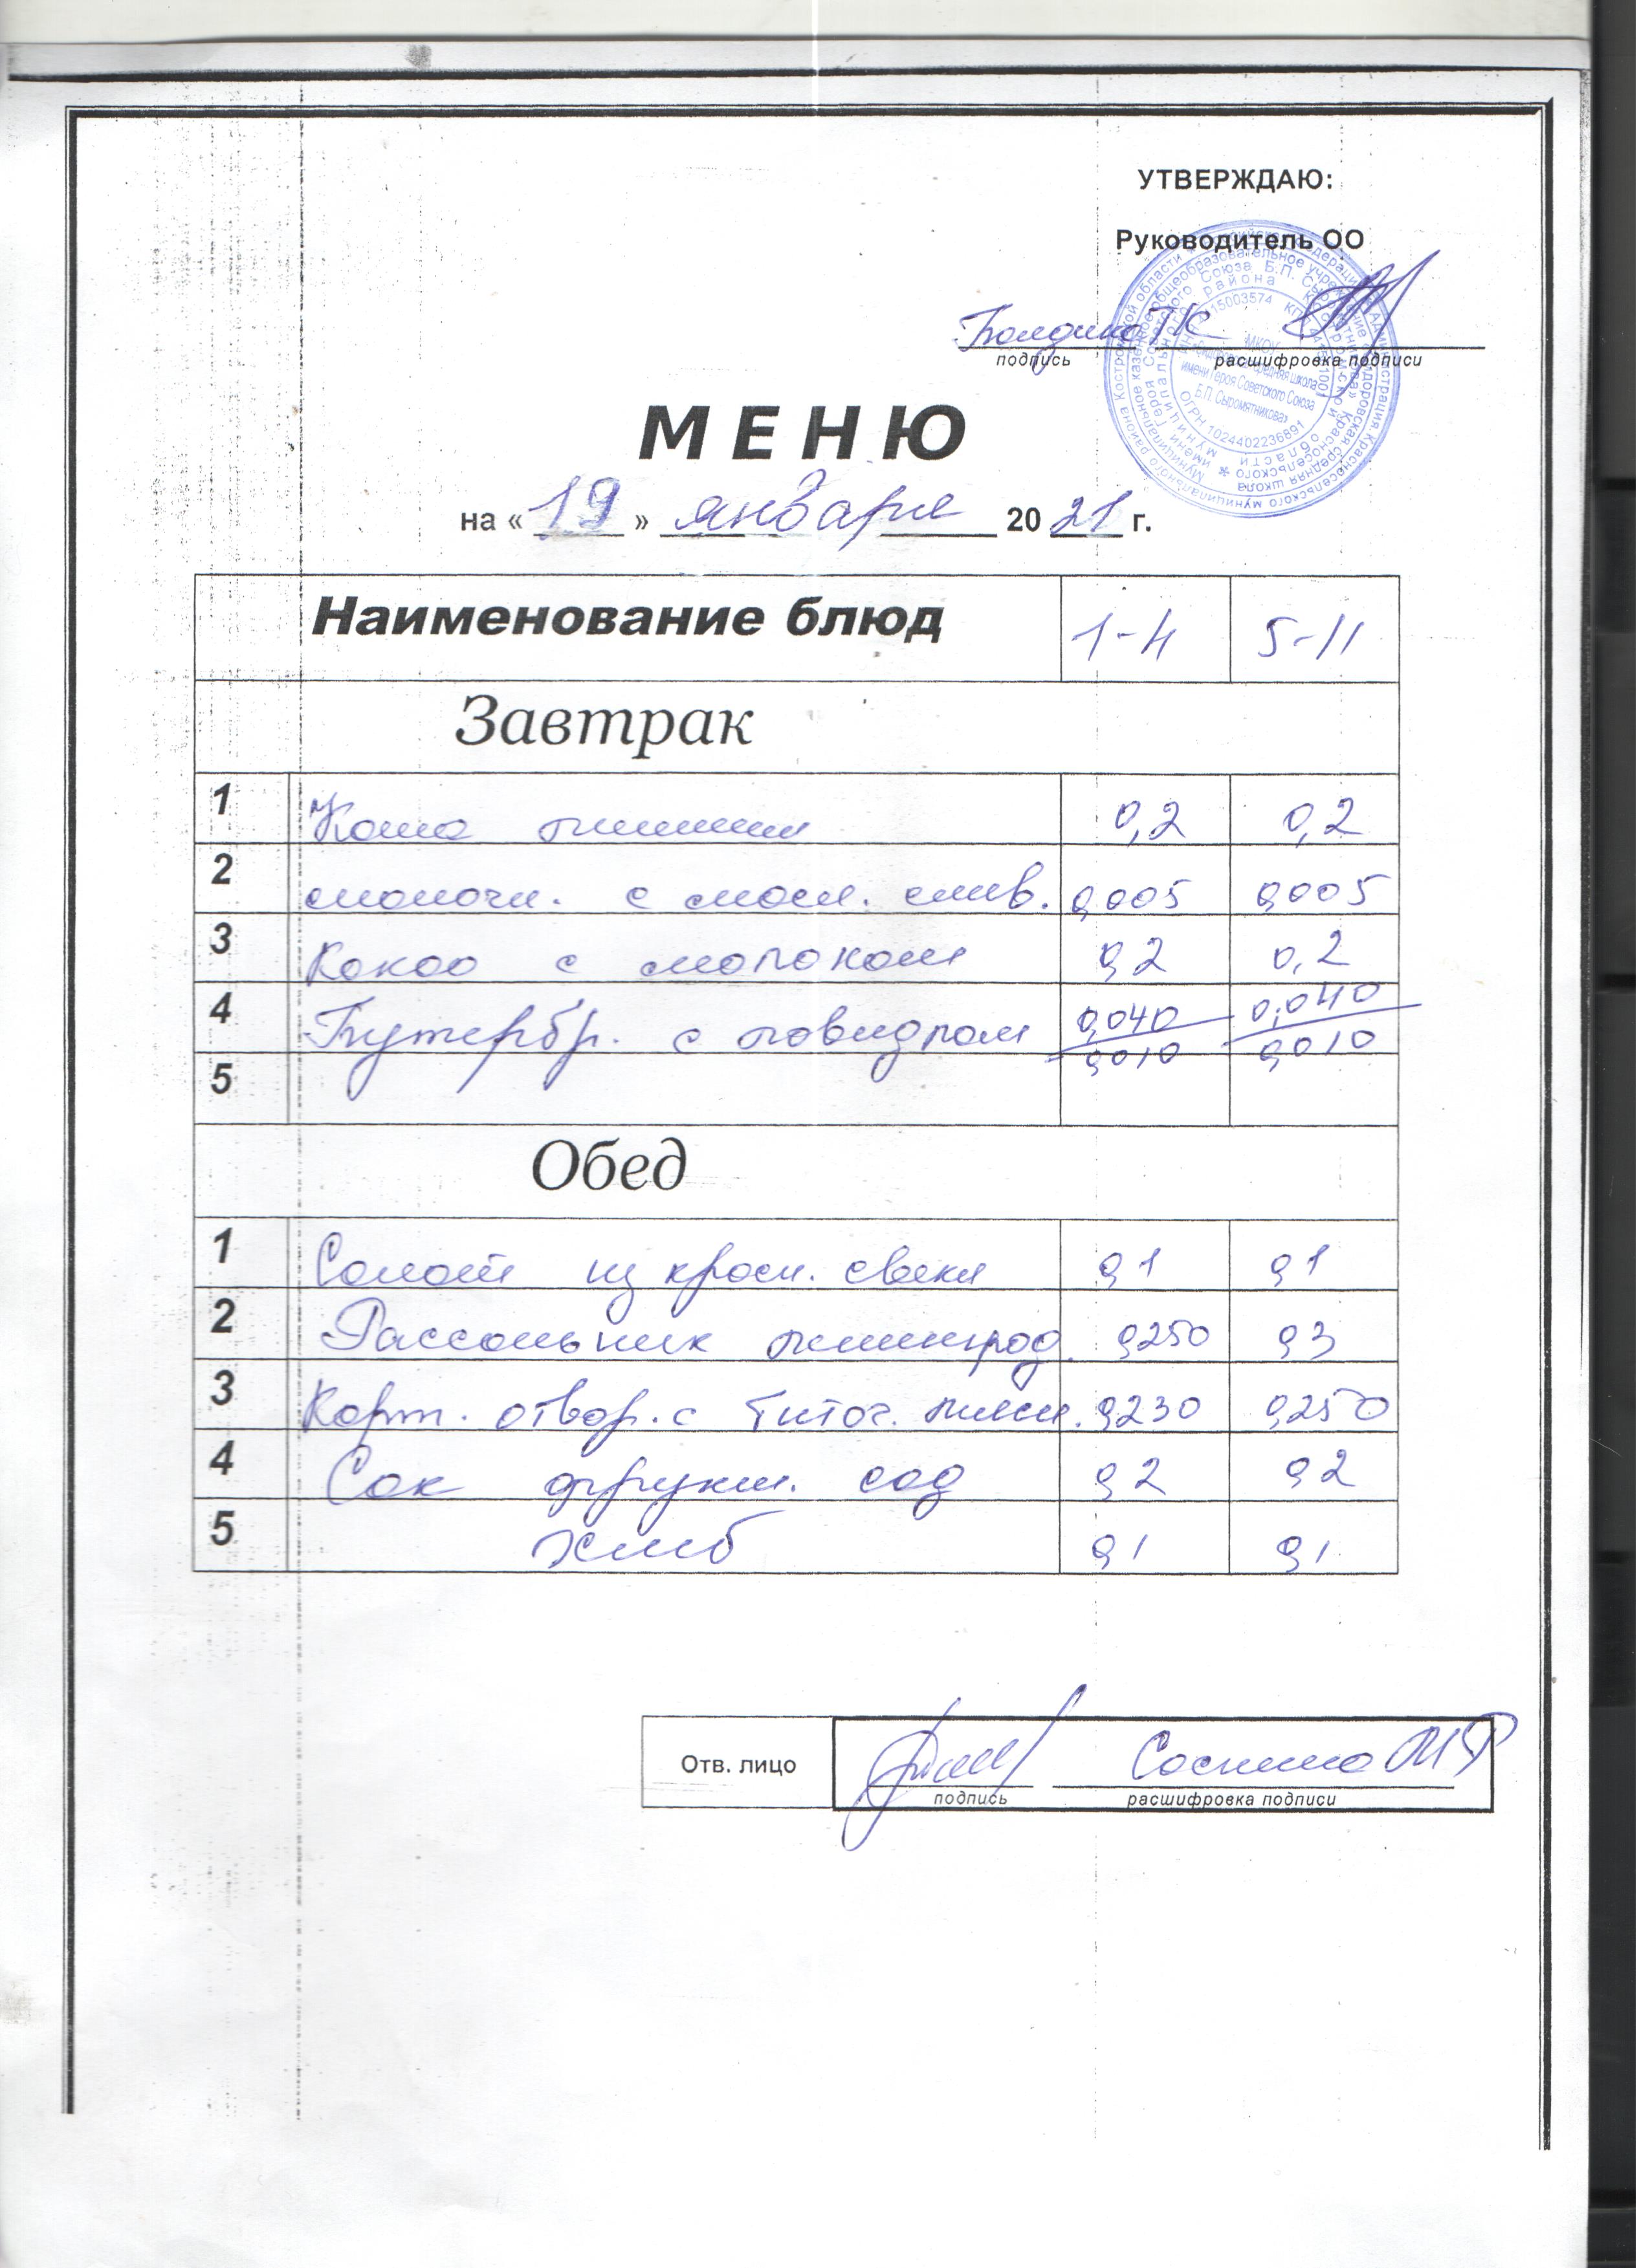 УТВЕРЖДАЮ:
Руководитель ОО
подпись расшифровка подписи
МЕНЮ
на « 19 » января 20 21 г.
Наименование блюд 1-4 5-11
Завтрак
1 Каша пшенная 0,2 0,2
2 молочн. с масл. слив. 0,005 0,005
3 Какао с молоком 0,2 0,2
4 Бутербр. с повидлом 0,040 0,040
0,010 0,010
5
Обед
1 Салат из красн. свеклы 0,1 0,1
2 Рассольник ленинград. 0,250 0,3
3 Карт. отвар. с биточ. мясн. 0,230 0,250
4 Сок фрукт. сад 0,2 0,2
5 Хлеб 0,1 0,1
Отв. лицо
подпись расшифровка подписи
МКОУ
средняя школа
имени Героя Советского Союза
Б.П. Сыромятникова»
ОГРН 1024402236891